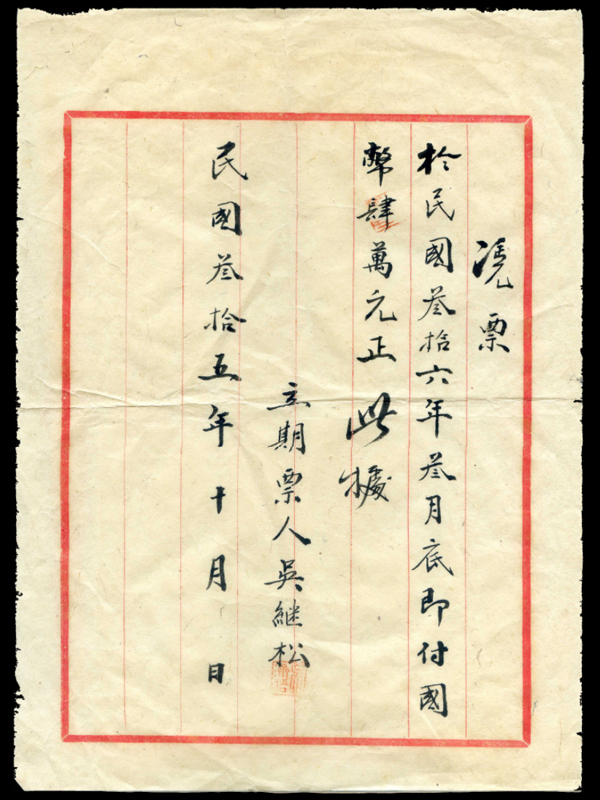 凴票
於民國叁拾六年叁月底即付國
幣肆萬元正此據
立期票人吳継松
民國叁拾五年十月 日